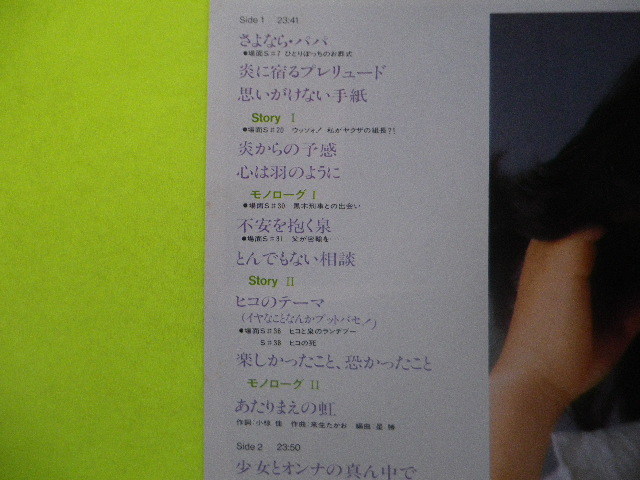 Side 1　23:41
さよなら・パパ
●場面S♯7　ひとりぼっちのお葬式
炎に宿るプレリュード
思いがけない手紙
Story Ⅰ
●場面S♯20　ウッソォ！ 私がヤクザの組長?!
炎からの予感
心は羽のように
モノローグⅠ
●場面S♯30　黒木刑事との出会い
不安を抱く泉
●場面S♯31　父が密輸を
とんでもない相談
Story Ⅱ
ヒコのテーマ
(イヤなことなんかブットバセ！)
●場面S♯36　ヒコと泉のランデブー
S♯38　ヒコの死
楽しかったこと、恐かったこと
モノローグⅡ
あたりまえの虹
作詞:小椋 佳　作曲:来生たかお　編曲:星 勝
Side 2　23:50
少女とオンナの真ん中で